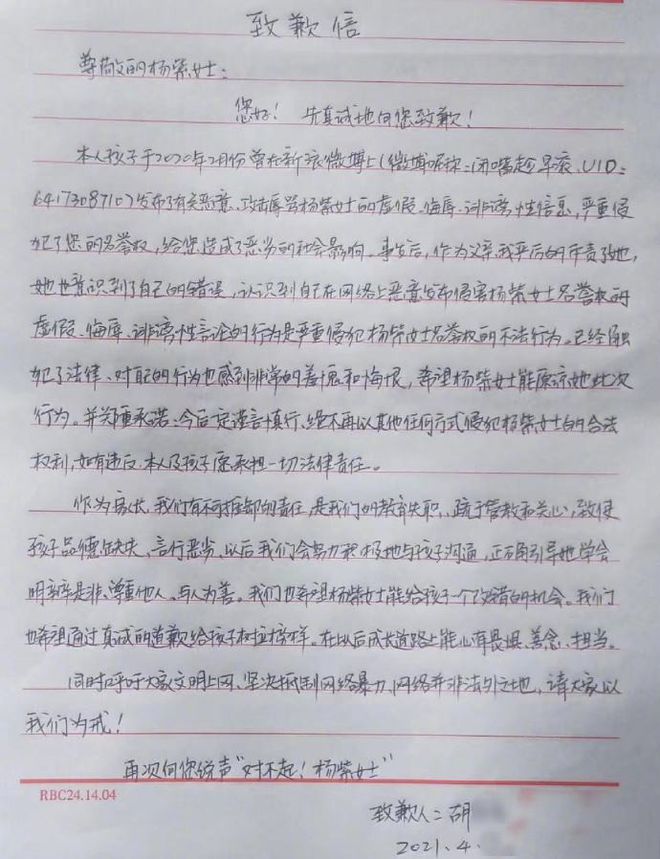 致歉信
尊敬的杨紫女士：
您好！先真诚地向您致歉！
本人孩子于2020年2月份曾在新浪微博上(微博昵称：闭嘴趁早滚、UID：
6417308710)发布了有关恶意、攻击辱骂杨紫女士的虚假、侮辱、诽谤性信息，严重侵
犯了您的名誉权，给您造成了恶劣的社会影响。事发后，作为父亲我严厉的斥责了她，
她也意识到了自己的错误，认识到自己在网络上恶意发布侵害杨紫女士名誉权的
虚假、侮辱、诽谤性言论的行为是严重侵犯杨紫女士名誉权的不法行为。已经触
犯了法律、对自己的行为也感到非常的羞愧和悔恨，希望杨紫女士能原谅她此次
行为。并郑重承诺：今后一定谨言慎行、绝不再以其他任何方式侵犯杨紫女士的合法
权利，如有违反、本人及孩子愿承担一切法律责任。
作为家长，我们有不可推卸的责任，是我们的教育失职、疏于管教和关心，致使
孩子品德缺失、言行恶劣，以后我们会努力积极地与孩子沟通，正确引导她学会
明辨是非、尊重他人、与人为善。我们也希望杨紫女士能给孩子一个改错的机会。我们
也希望通过真诚的道歉给孩子树立榜样。在以后成长道路上能心有畏惧、善念、担当。
同时呼吁大家文明上网、坚决抵制网络暴力、网络并非法外之地，请大家以
我们为戒！
再次向您说声“对不起！杨紫女士”
RBC24.14.04
致歉人：胡
2021.4.